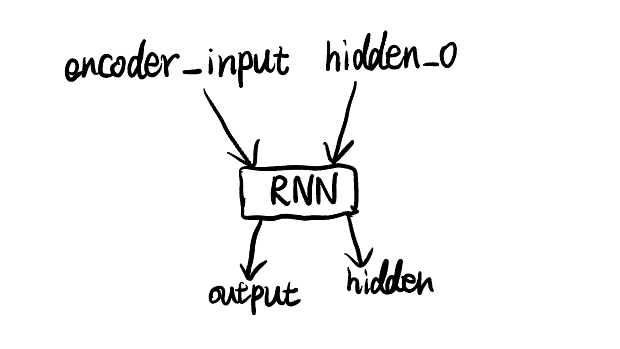 encoder_input hidden_0
RNN
output hidden